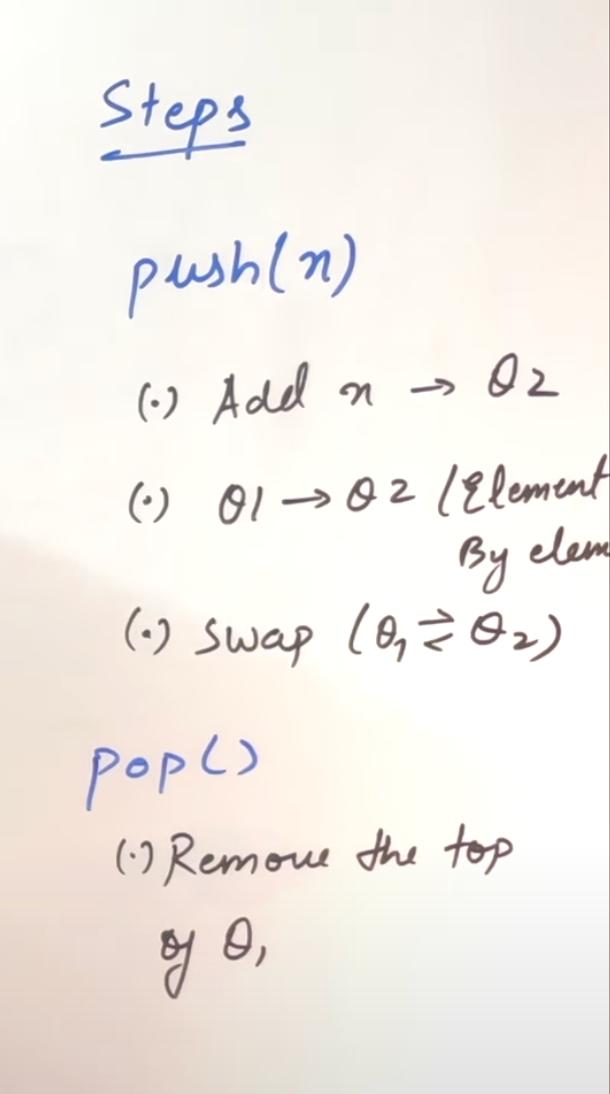 Steps
push(n)
(·) Add n → Q2
(·) Q1 → Q2 (Element
By elem
(·) swap (Q1 ⇄ Q2)
pop()
(·) Remove the top
of Q1